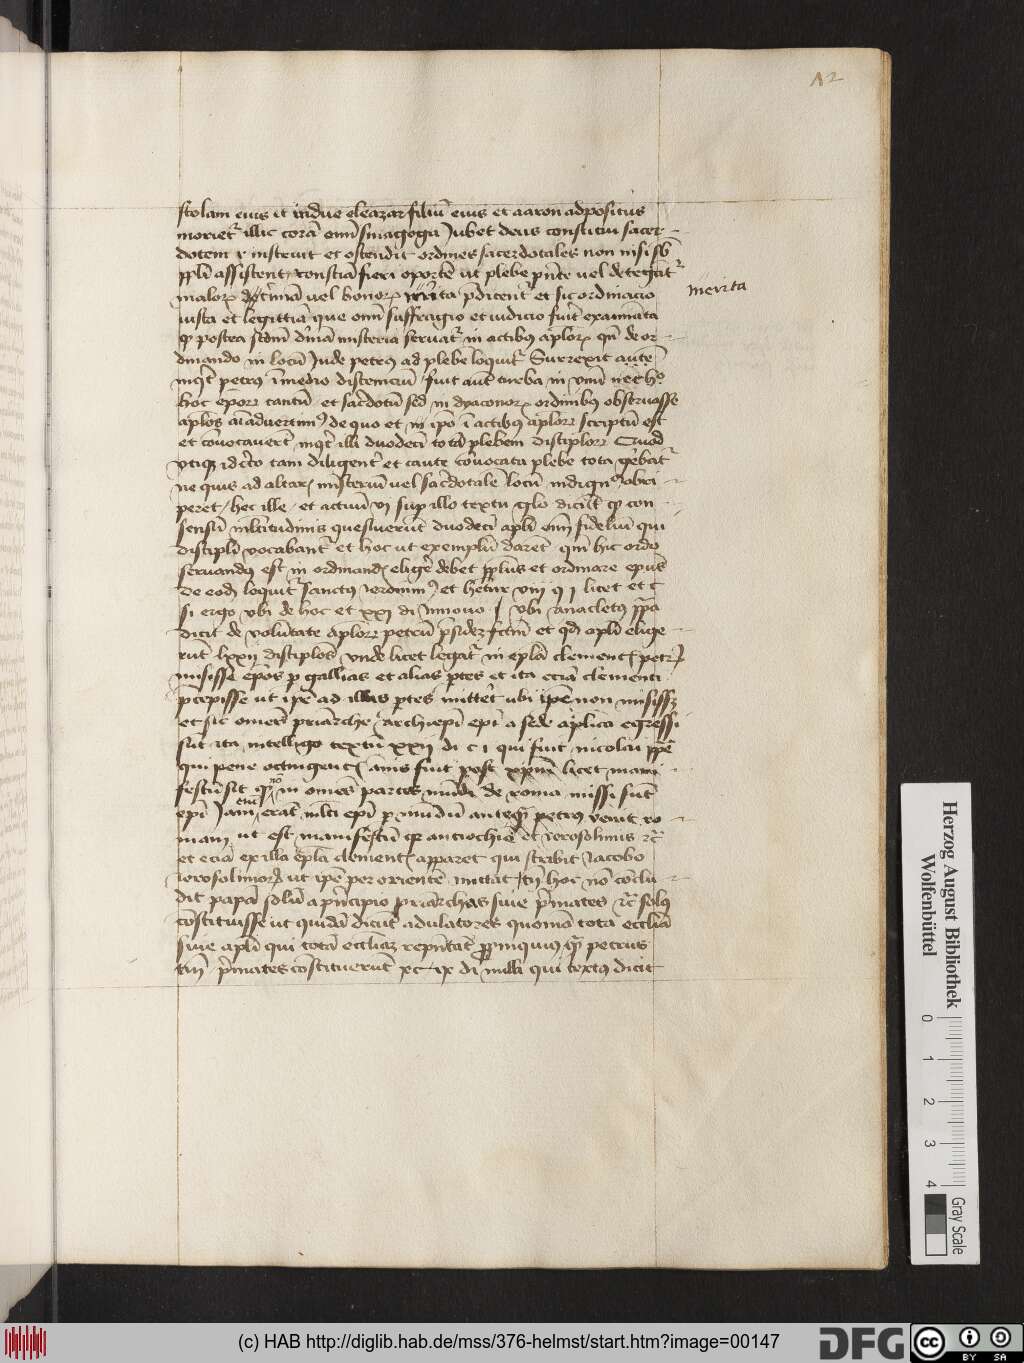 A2
stolam eius et indue eleazar filiū eius et aaron adpositus
moriet᷑ illic corā om̄i sinagoga Jubet deus constitui sacer
dotem et instruit et ostendit ordines sacerdotales non nisi sb̄
ppl̄i assistent᷑ constiā fieri oportē ut plebe pn̄te vel detegāt᷑
malorꝫ crīmīa vel bonorꝫ merita p̄dicent᷑ et sic ordinacio
merita
iusta et legittīa que om̄i suffragio et iudicio fūit examīata
qꝫ postea scdm̄ dīnā misteria servat᷑ in actibꝫ aplorꝫ qn̄ de or
dinando in locū Jude petrus ad plebē loquit᷑ Surrexit autē
inqt̄ petrus ī medio discentiū fuit aut̄ turba in vnū nec hͦ
hoc ep̄orꝫ tantū et sac̄dotū sed in dyaconorꝫ ordinibꝫ observasse
aplōs aīadvertimꝰ de quo et in ipō ī actibꝫ aplorꝫ scriptū est
et cōvocaverūt inqt̄ illi duodecī totā plebem disciplorꝫ Quod
vtiqꝫ idcīto tam diligent᷑ et caute cōvocata plebe tota gēbat᷑
ne quis ad altarꝫ misteriū vel sac̄dotalē locū indignꝰ obri
peret / hec ille / et actuū vj sup illo textu glo dicit᷑ qꝫ con
sensū mltitudinis quesiverūt duodecī apli om̄i fideliū qui
discipli vocabant᷑ et hoc ut exemplū darēt qm̄ hic ordo
servandꝫ est in ordinandꝫ eligē debet ppl̄us et ordinare ep̄us
de eodꝫ loquit᷑ sanctus ierōnimꝰ et hētur viij q j licet et c
si ergo vbi de hoc et xxj di Jn novo / vbi anacletus ppā
dicit de volūtate aplorꝫ petrū p̄sidez fctm̄ et qd̄ apli elige
rūt lxxij disciplos vnde licet legat᷑ in eplā clementꝫ petrꝫ
misisse ep̄os p gallias et alias p̄tes et ita eciā clementi
p̄cepisse ut ipē ad illas p̄tes mittēt ubi ipē non misissꝫ
et sic omēs p̄arche archiep̄i ep̄i a sede aplica egressi
sūt ita intelligo textū xxij di c j qui fuit nicolai ppē
qui pene octingentꝫ ānis fuit post xpm̄ licet mani
festū sit qꝫ nō in omēs partes mūdi de roma missi sūt
ep̄i Jam eni erāt mlti ep̄i p mundū anteqꝫ petrus venit ro
mam ut est manifestū qꝫ antiochie et ierosolimis rc̄
et eciā ex illa epla clementꝫ apparet qui scribit Jacobo
ierosolimorꝫ ut ipē per orientē mittat tn̄ hoc nō cōclu
dit papā solū a p̄ncipio p̄archas sive p̄mates rc̄ solꝫ
cōstituisse ut quidā dicūt adulatores quomō tota eccliā
sive apli qui totā eccliaꝫ repn̄tāt ppinquius qꝫ petrus
tm̄ p̄mates cōstituerūt xcix di nulli qui textꝫ dicit
Herzog August Bibliothek
Wolfenbüttel
0 1 2 3 4
Gray Scale
(c) HAB http://diglib.hab.de/mss/376-helmst/start.htm?image=00147
DFG
cc BY SA